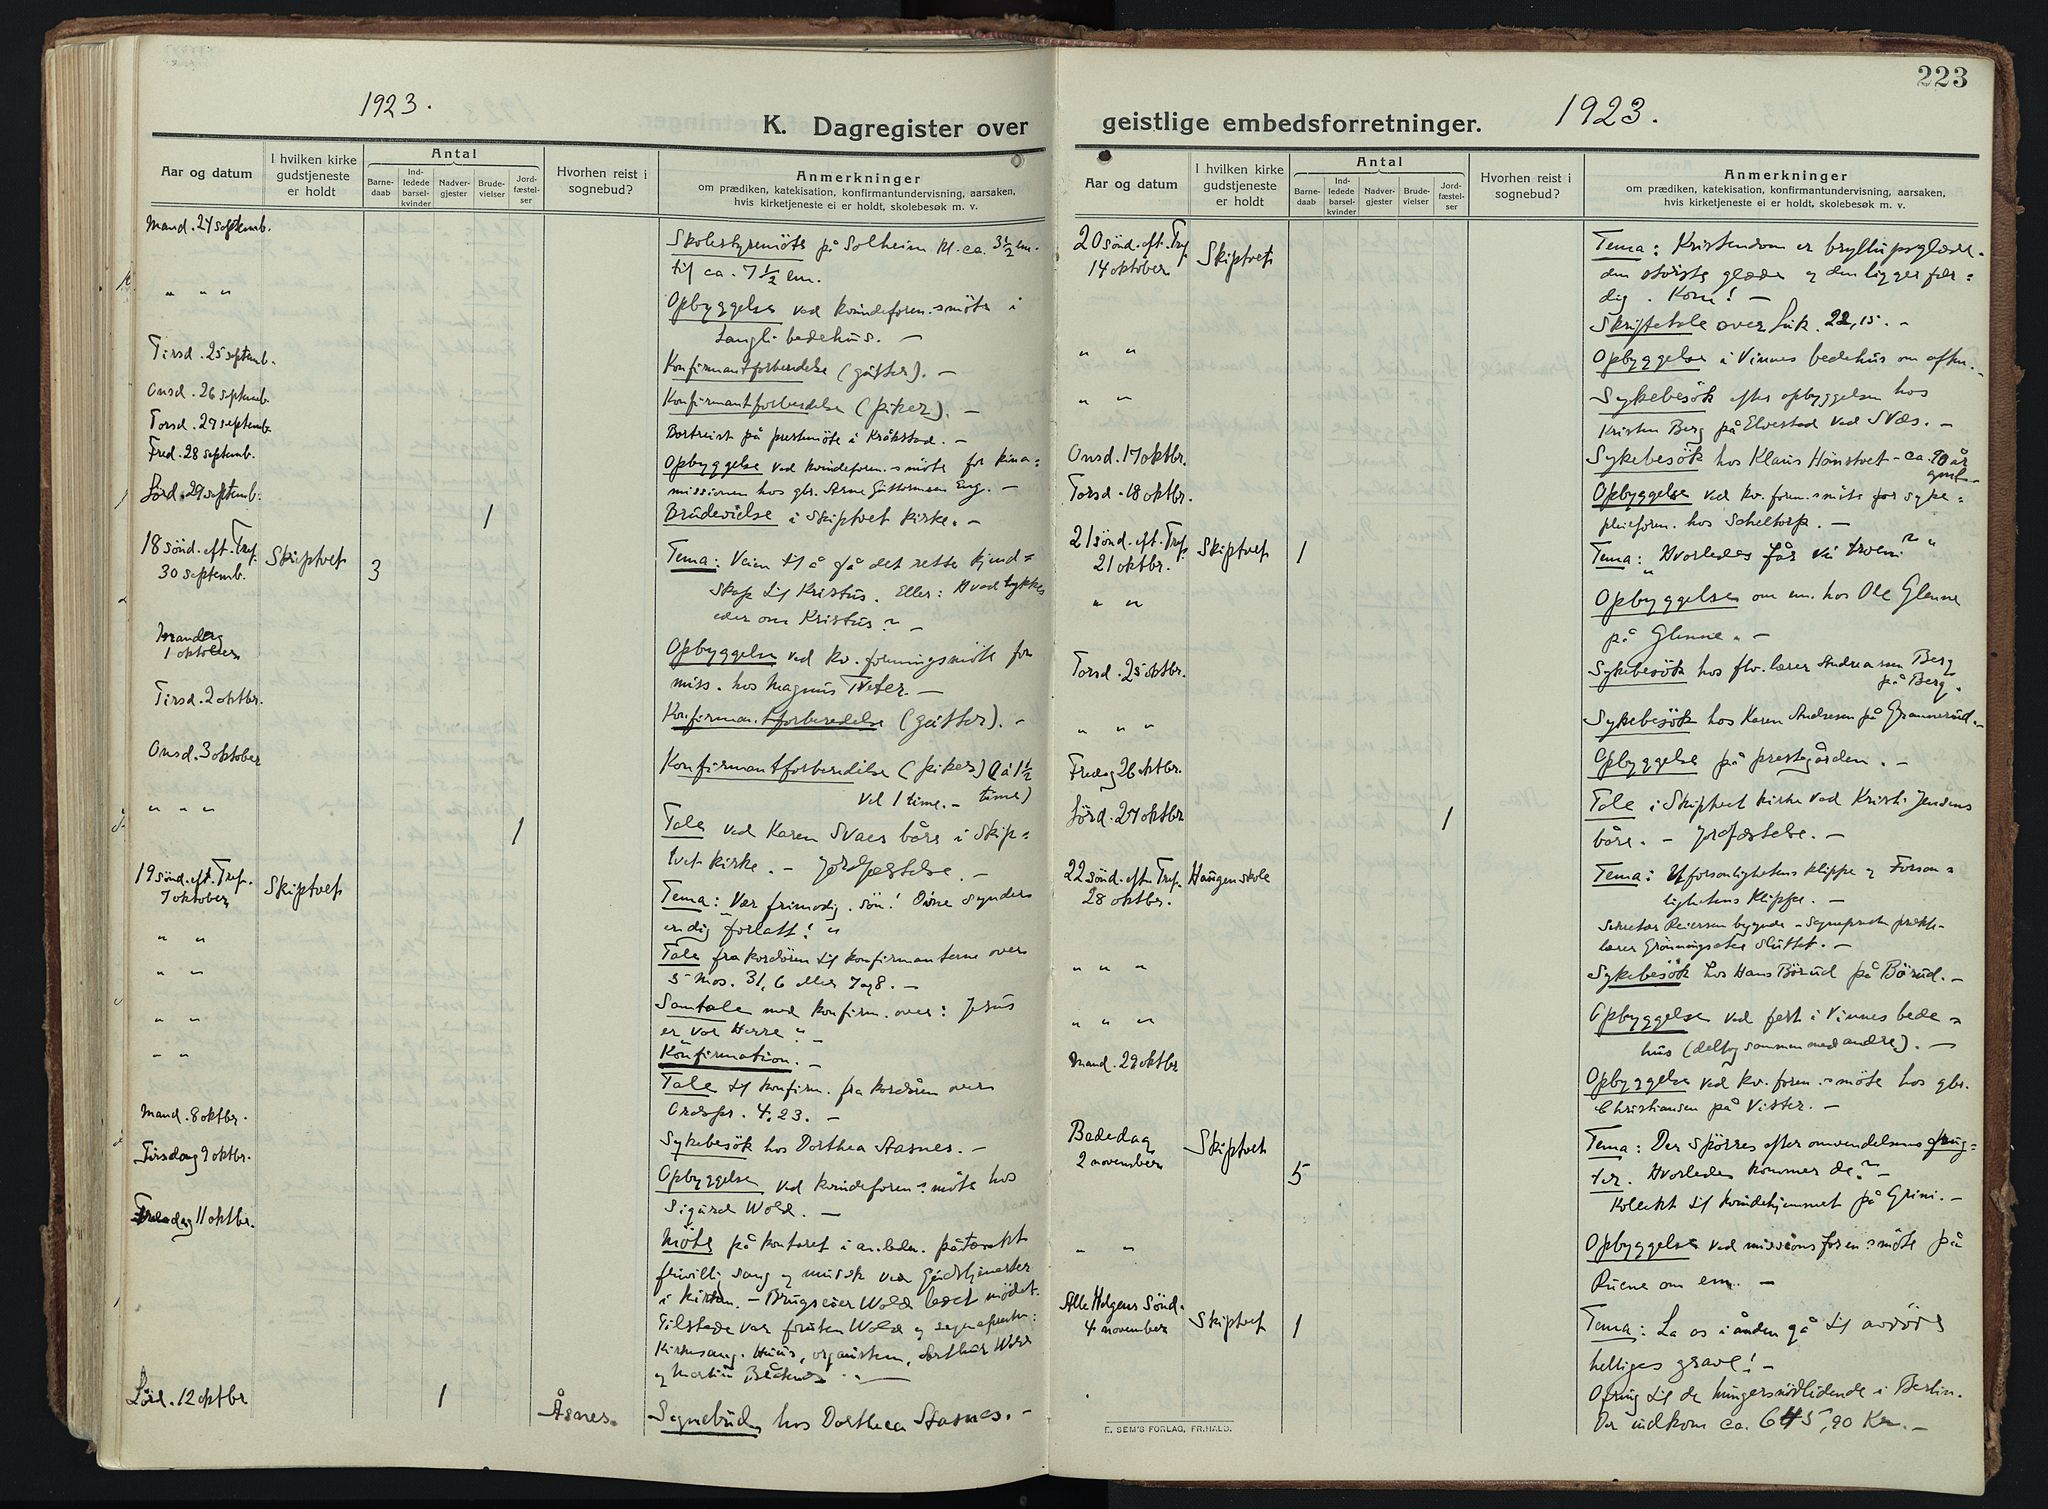 1923.
K. Dagregister over
Aar og datum
I hvilken kirke gudstjeneste er holdt
Antal
Barnedaab
Indledede barselkvinder
Nadvergjester
Brudevielser
Jordfæstelser
Hvorhen reist i sognebud?
Anmerkninger
om prædiken, katekisation, konfirmantundervisning, aarsaken,
hvis kirketjeneste ei er holdt, skolebesøk m. v.
Mand. 24 septemb.
Skolestyremöte på Solheim kl. ca. 3 1/2 em.
til ca. 7 1/2 em.
" " "
Opbyggelse ved kvindeforen.smöte i
Langli bedehus. —
Tirsd. 25 septemb.
Konfirmantforberedelse (gutter). —
Onsd. 26 septemb.
Konfirmantforberedelse (piker). —
Torsd. 27 septemb.
Bortreist på prestemöte i Kråkstad. —
Fred. 28 septemb.
Opbyggelse ved kvindeforen.smöte for kina=
missionen hos gbr. Arne Guttormsen Eng. —
Lörd. 29 septemb.
1
Brudevielse i Skiptvet kirke. —
18 sönd. eft. Tref.
30 septemb.
Skiptvet
3
Tema: Veien til å få det rette kjend=
skap til Kristus. Eller: Hvad tykkes
eder om Kristus? —
Mandag
1 oktober
Opbyggelse ved kv. foreningsmöte for
miss. hos Magnus Tveter. —
Tirsd. 2 oktbr.
Konfirmantforberedelse (gutter). —
Onsd. 3 oktober
Konfirmantforberedelse (piker) (à 1 1/2
vel 1 time. — time)
" " "
1
Tale ved Karen Svaes båre i Skip=
tvet kirke. — Jordfestelse. —
19 sönd. eft. Tref.
7 oktober
Skiptvet
Tema: Vær frimodig, sön! Dine synder
er dig forlatt! "
" "
Tale fra kordören til konfirmanterne over
5 Mos. 31, 6 eller 7 og 8. —
" "
Samtale med konfirm. over: Jesus
er vor Herre " —
" "
Konfirmation. —
Tale til konfirm. fra kordören over
Ordspr. 4, 23. —
Mand. 8 oktbr.
Sykebesök hos Dorthea Aasnes. —
Tirsdag 9 oktbr.
Opbyggelse ved kvindeforen.smöte hos
Sigurd Wold. —
11 oktbr.
Möte på kontoret i anleden. påtænkt
frivillig sang og musik ved Gudstjenester
i kirken. — Brugseier Wold ledet mödet.
Tilstede var fruten Wold og sognepresten:
Kirkesang. Huus, organisten, Arthur Wold
og Martin —
Lörd. 12 oktbr
1
Åsnes.
Sognebud hos Dorthea Aasnes. —
223
geistlige embedsforretninger.
1923.
Aar og datum
I hvilken kirke gudstjeneste er holdt
Antal
Barnedaab
Indledede barselkvinder
Nadvergjester
Brudevielser
Jordfæstelser
Hvorhen reist i sognebud?
Anmerkninger
om prædiken, katekisation, konfirmantundervisning, aarsaken,
hvis kirketjeneste ei er holdt, skolebesøk m. v.
20 sönd. eft. Tref.
14 oktober
Skiptvet
Tema: Kristendom er bryllupsglæde —
den störste glæde og den ligger fær=
dig. Kom! —
Skriftetale over Luk. 22, 15. —
" "
Opbyggelse i Vinnes bedehus om aften. —
" "
Sykebesök efter opbyggelsen hos
Kristen Berg på Elvestad ved Svæs. —
Onsd. 17 oktbr.
Sykebesök hos Klaus Hönstvet - ca. 90 år
gml. —
Torsd. 18 oktbr.
Opbyggelse ved kv. foren.smöte for syke=
pleieforen. hos Scheltorp. —
21 sönd. eft. Tref.
21 oktbr.
Skiptvet
1
Tema: "Hvorledes får vi troen?"
" "
Opbyggelse om em. hos Ole Glenne
på Glenne. —
Torsd. 25 oktbr.
Sykebesök hos fhv. lærer Andreassen Berg
på Berg.
" "
Sykebesök hos Karen Andresen på Grannerud. —
Fredag 26 oktbr.
Opbyggelse på prestegården. —
Lörd. 27 oktbr
1
Tale i Skiptvet kirke ved Krist. Jensens
båre. — Jordfæstelse. —
22 sönd. eft. Tref.
28 oktbr.
Haugen skole
Tema: Uforsonlighetens klippe og Forson=
lighetens Klippe. —
Sekretær Reiersen begynde - Sognepresten prækte -
lærer Grönningsæter sluttet. —
" " "
Sykebesök hos Hans Börud på Börud. —
" " "
Opbyggelse ved fest i Vinnes bede=
hus (deltog sammen med andre). —
Mand. 29 oktbr
Opbyggelse ved kv. foren.smöte hos gbr.
Christiansen på Vister. —
Bededag
2 november
Skiptvet
5
Tema: Der spörres efter omvendelsens frug=
ter. Hvorledes kommer de? —
Kolekt til kvindehjemmet på Grini. —
" "
Opbyggelse ved missionsforen.smöte på
Ruene om em. —
Alle Helgens Sönd.
4 november
Skiptvet
1
Tema: La os i ånden gå til avdöde
helliges grave! —
Ofring til de hungersnödlidende i Berlin.
Der indkom ca. 645,90 Kr. —
E. SEM'S FORLAG, FR.HALD.